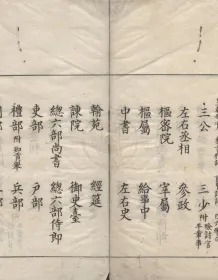 三公 三少 附 平章事
左右丞相 參政
樞密院 宰屬
樞屬 給事中
中書 左右史
翰苑 經筵
諫院 御史臺
總六部尚書 總六部侍郎
吏部 戶部
禮部 附知貢舉 兵部